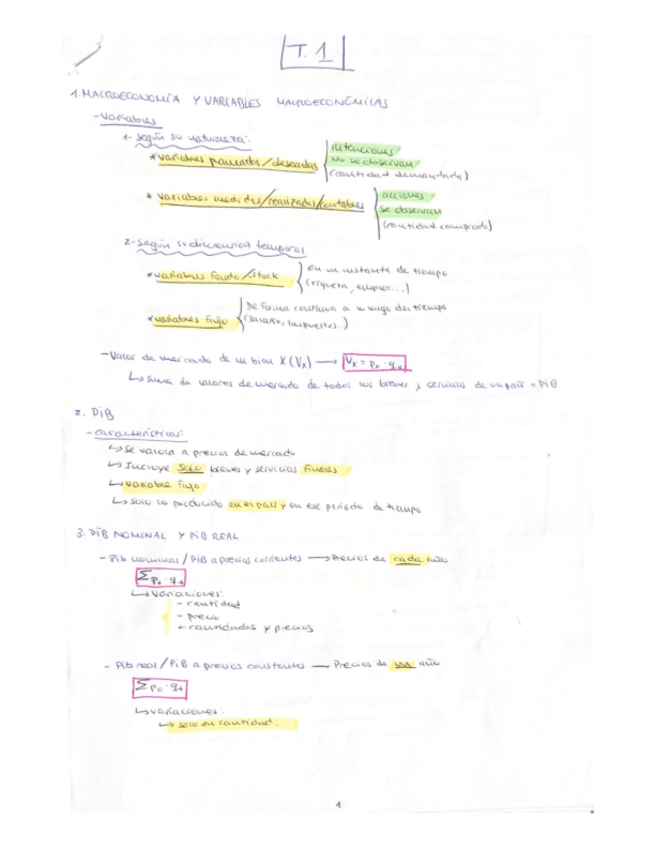 T. 1
1. MACROECONOMÍA Y VARIABLES MACROECONÓMICAS
- Variables
1- según su naturaleza:
* variables planeadas/deseadas
intenciones
no se observan
(cantidad demandada)
* variables medidas/realizadas/contables
acciones
se observan
(cantidad comprada)
2- según su dimensión temporal
* variables fondo/stock
en un instante de tiempo
(riqueza, ...)
* variables flujo
De forma continua a lo largo del tiempo
(salario, impuestos..)
- Valor de mercado de un bien X (Vx) → Vx = px · qx
↳ suma de valores de mercado de todos los bienes y servicios de un país = PIB
2. PIB
- características:
↳ Se valora a precios de mercado
↳ Incluye solo bienes y servicios finales
↳ variable flujo
↳ solo lo producido en el país y en ese periodo de tiempo
3. PIB NOMINAL Y PIB REAL
- Pib nominal/PIB a precios corrientes → Precios de cada año
Σ Pt · qt
↳ variaciones:
- cantidad
- precio
- cantidades y precios
- Pib real/PIB a precios constantes — Precios de un año
Σ Po · qt
↳ variaciones:
↳ solo en cantidad.
1